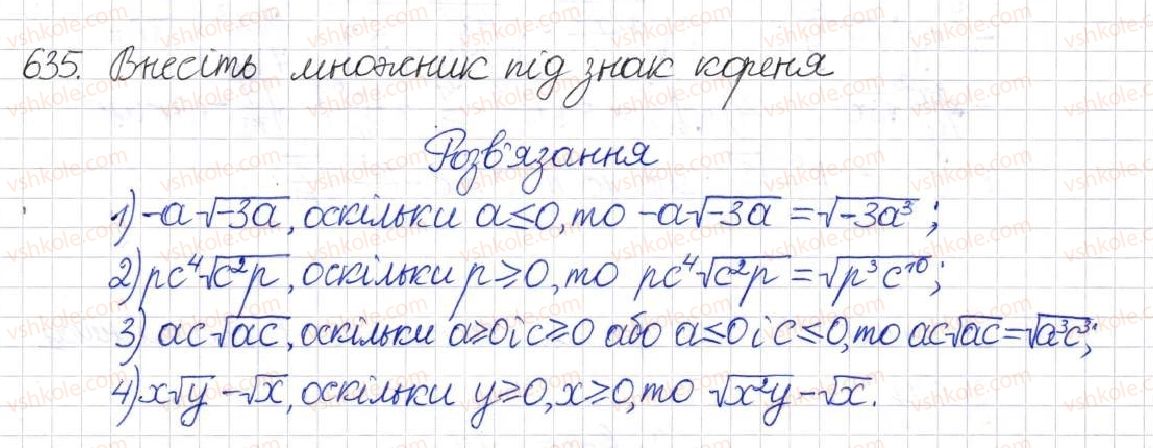 635. Внесіть множник під знак кореня
Розв'язання
1) -a√(-3a), оскільки a≤0, то -a√(-3a) = √(-3a³);
2) pc⁴√(c²p), оскільки p≥0, то pc⁴√(c²p) = √(p³c¹⁰);
3) ac√(ac), оскільки a≥0 і c≥0 або a≤0 і c≤0, то ac√(ac) = √(a³c³);
4) x√y - √x, оскільки y≥0, x≥0, то √(x²y) - √x.